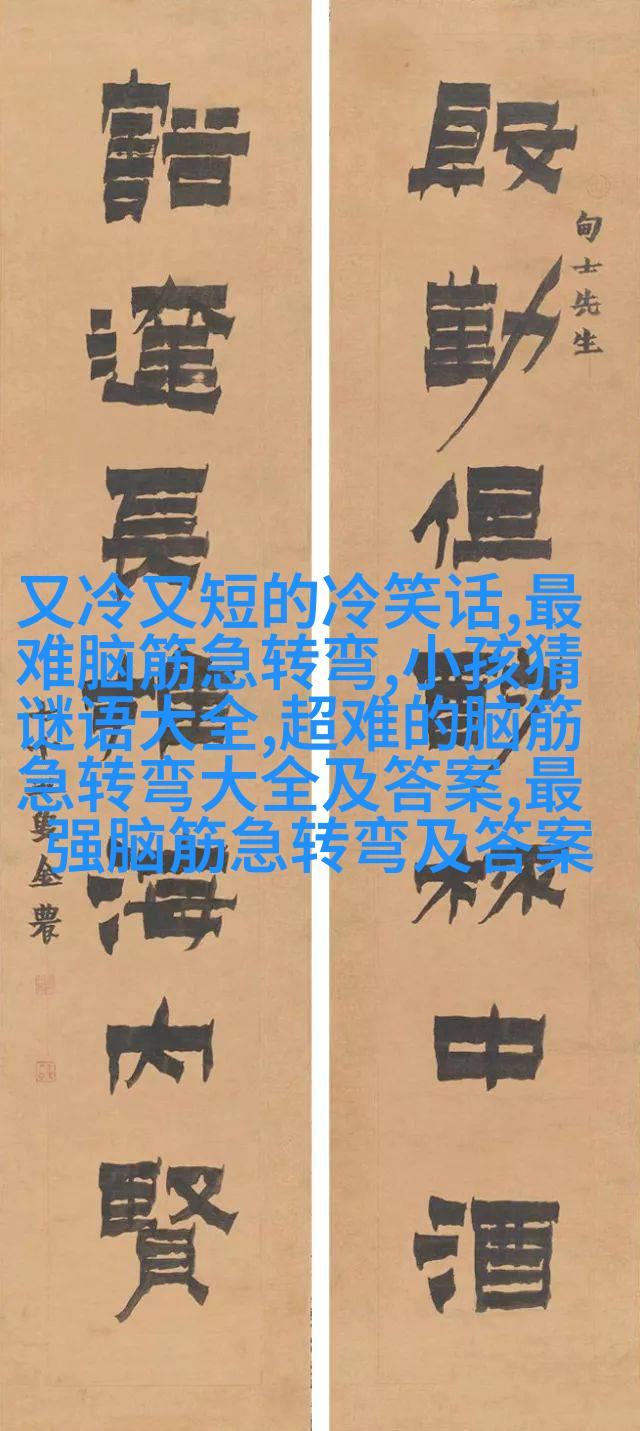 甸士先生
殷勤但
中酒
豁達長
海內賢
金農
又冷又短的冷笑话,最
难脑筋急转弯,小孩猜
谜语大全,超难的脑筋
急转弯大全及答案,最
强脑筋急转弯及答案